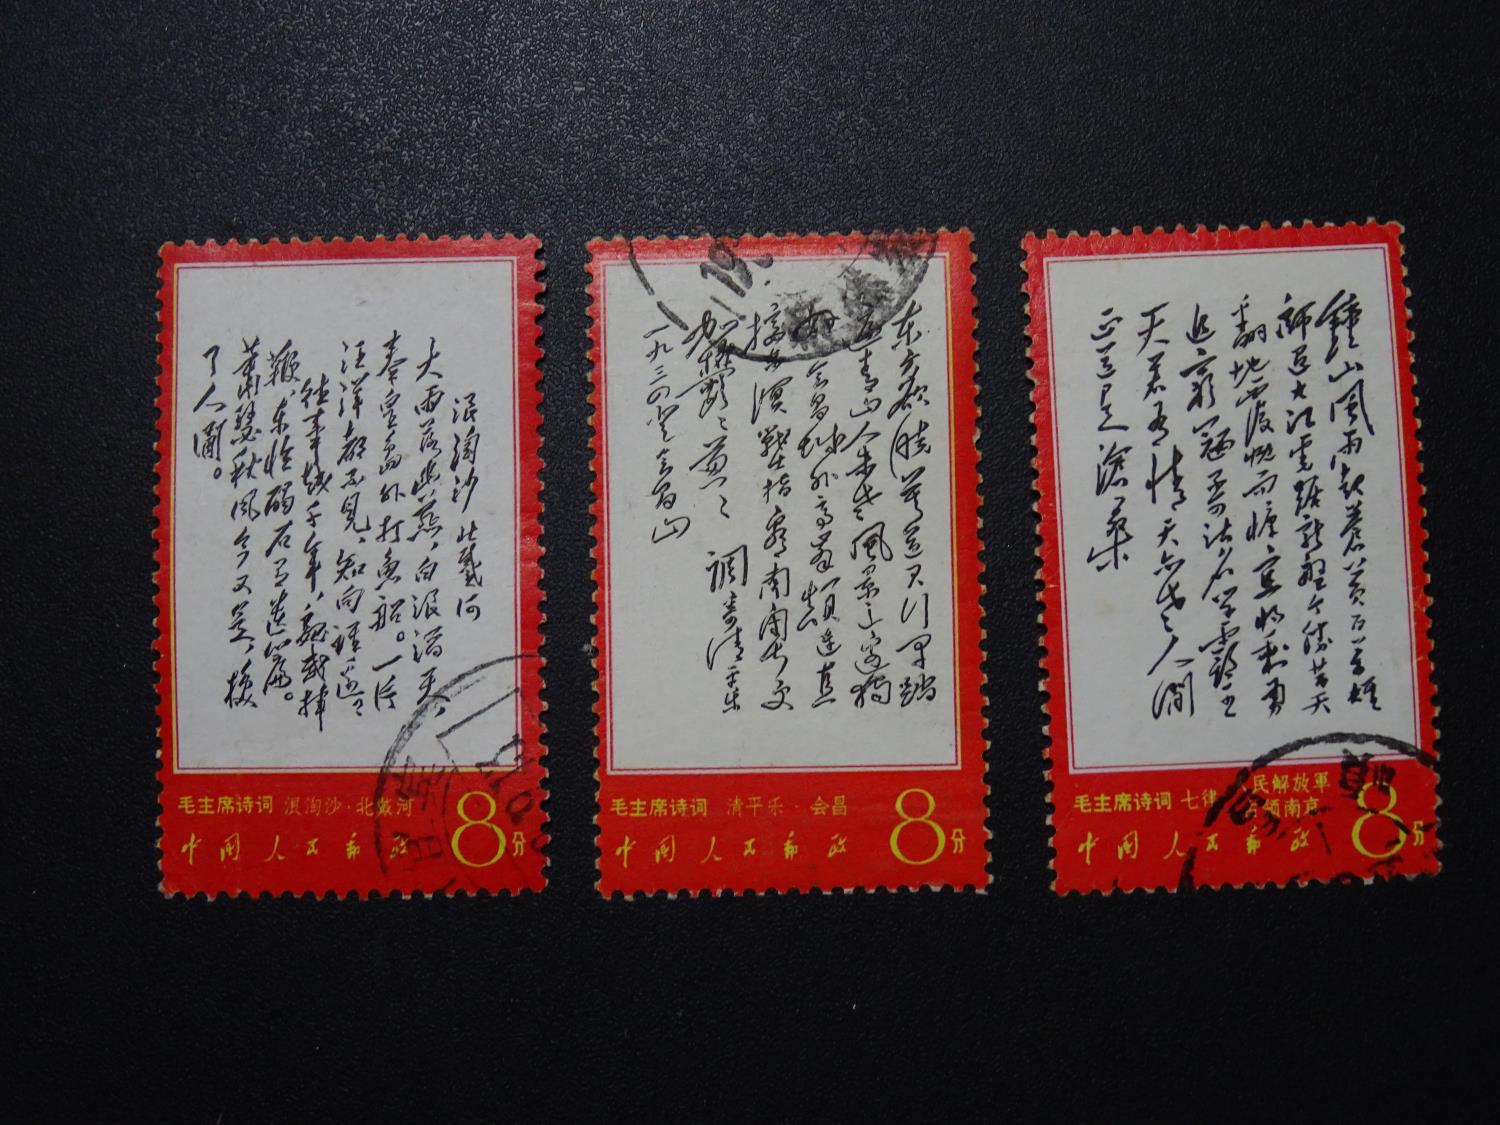 浪淘沙 北戴河
大雨落幽燕，白浪滔天，
秦皇岛外打鱼船。一片
汪洋都不见，知向谁边？
往事越千年，魏武挥
鞭，东临碣石有遗篇。
萧瑟秋风今又是，换
了人间。
毛主席诗词 浪淘沙·北戴河
中国人民邮政
8分
东方欲晓莫道君行早踏
遍青山人未老风景这边独
好 会昌城外高峰颠连直
接东溟战士指看南粤更
加郁郁葱葱
调寄清平乐
一九三四登会昌山
毛主席诗词 清平乐·会昌
中国人民邮政
8分
钟山风雨起苍黄百万雄
师过大江虎踞龙盘今胜昔天
翻地覆慨而慷宜将剩勇
追穷寇不可沽名学霸王
天若有情天亦老人间
正道是沧桑
毛主席诗词 七律 民解放軍
领南京
中国人民邮政
8分